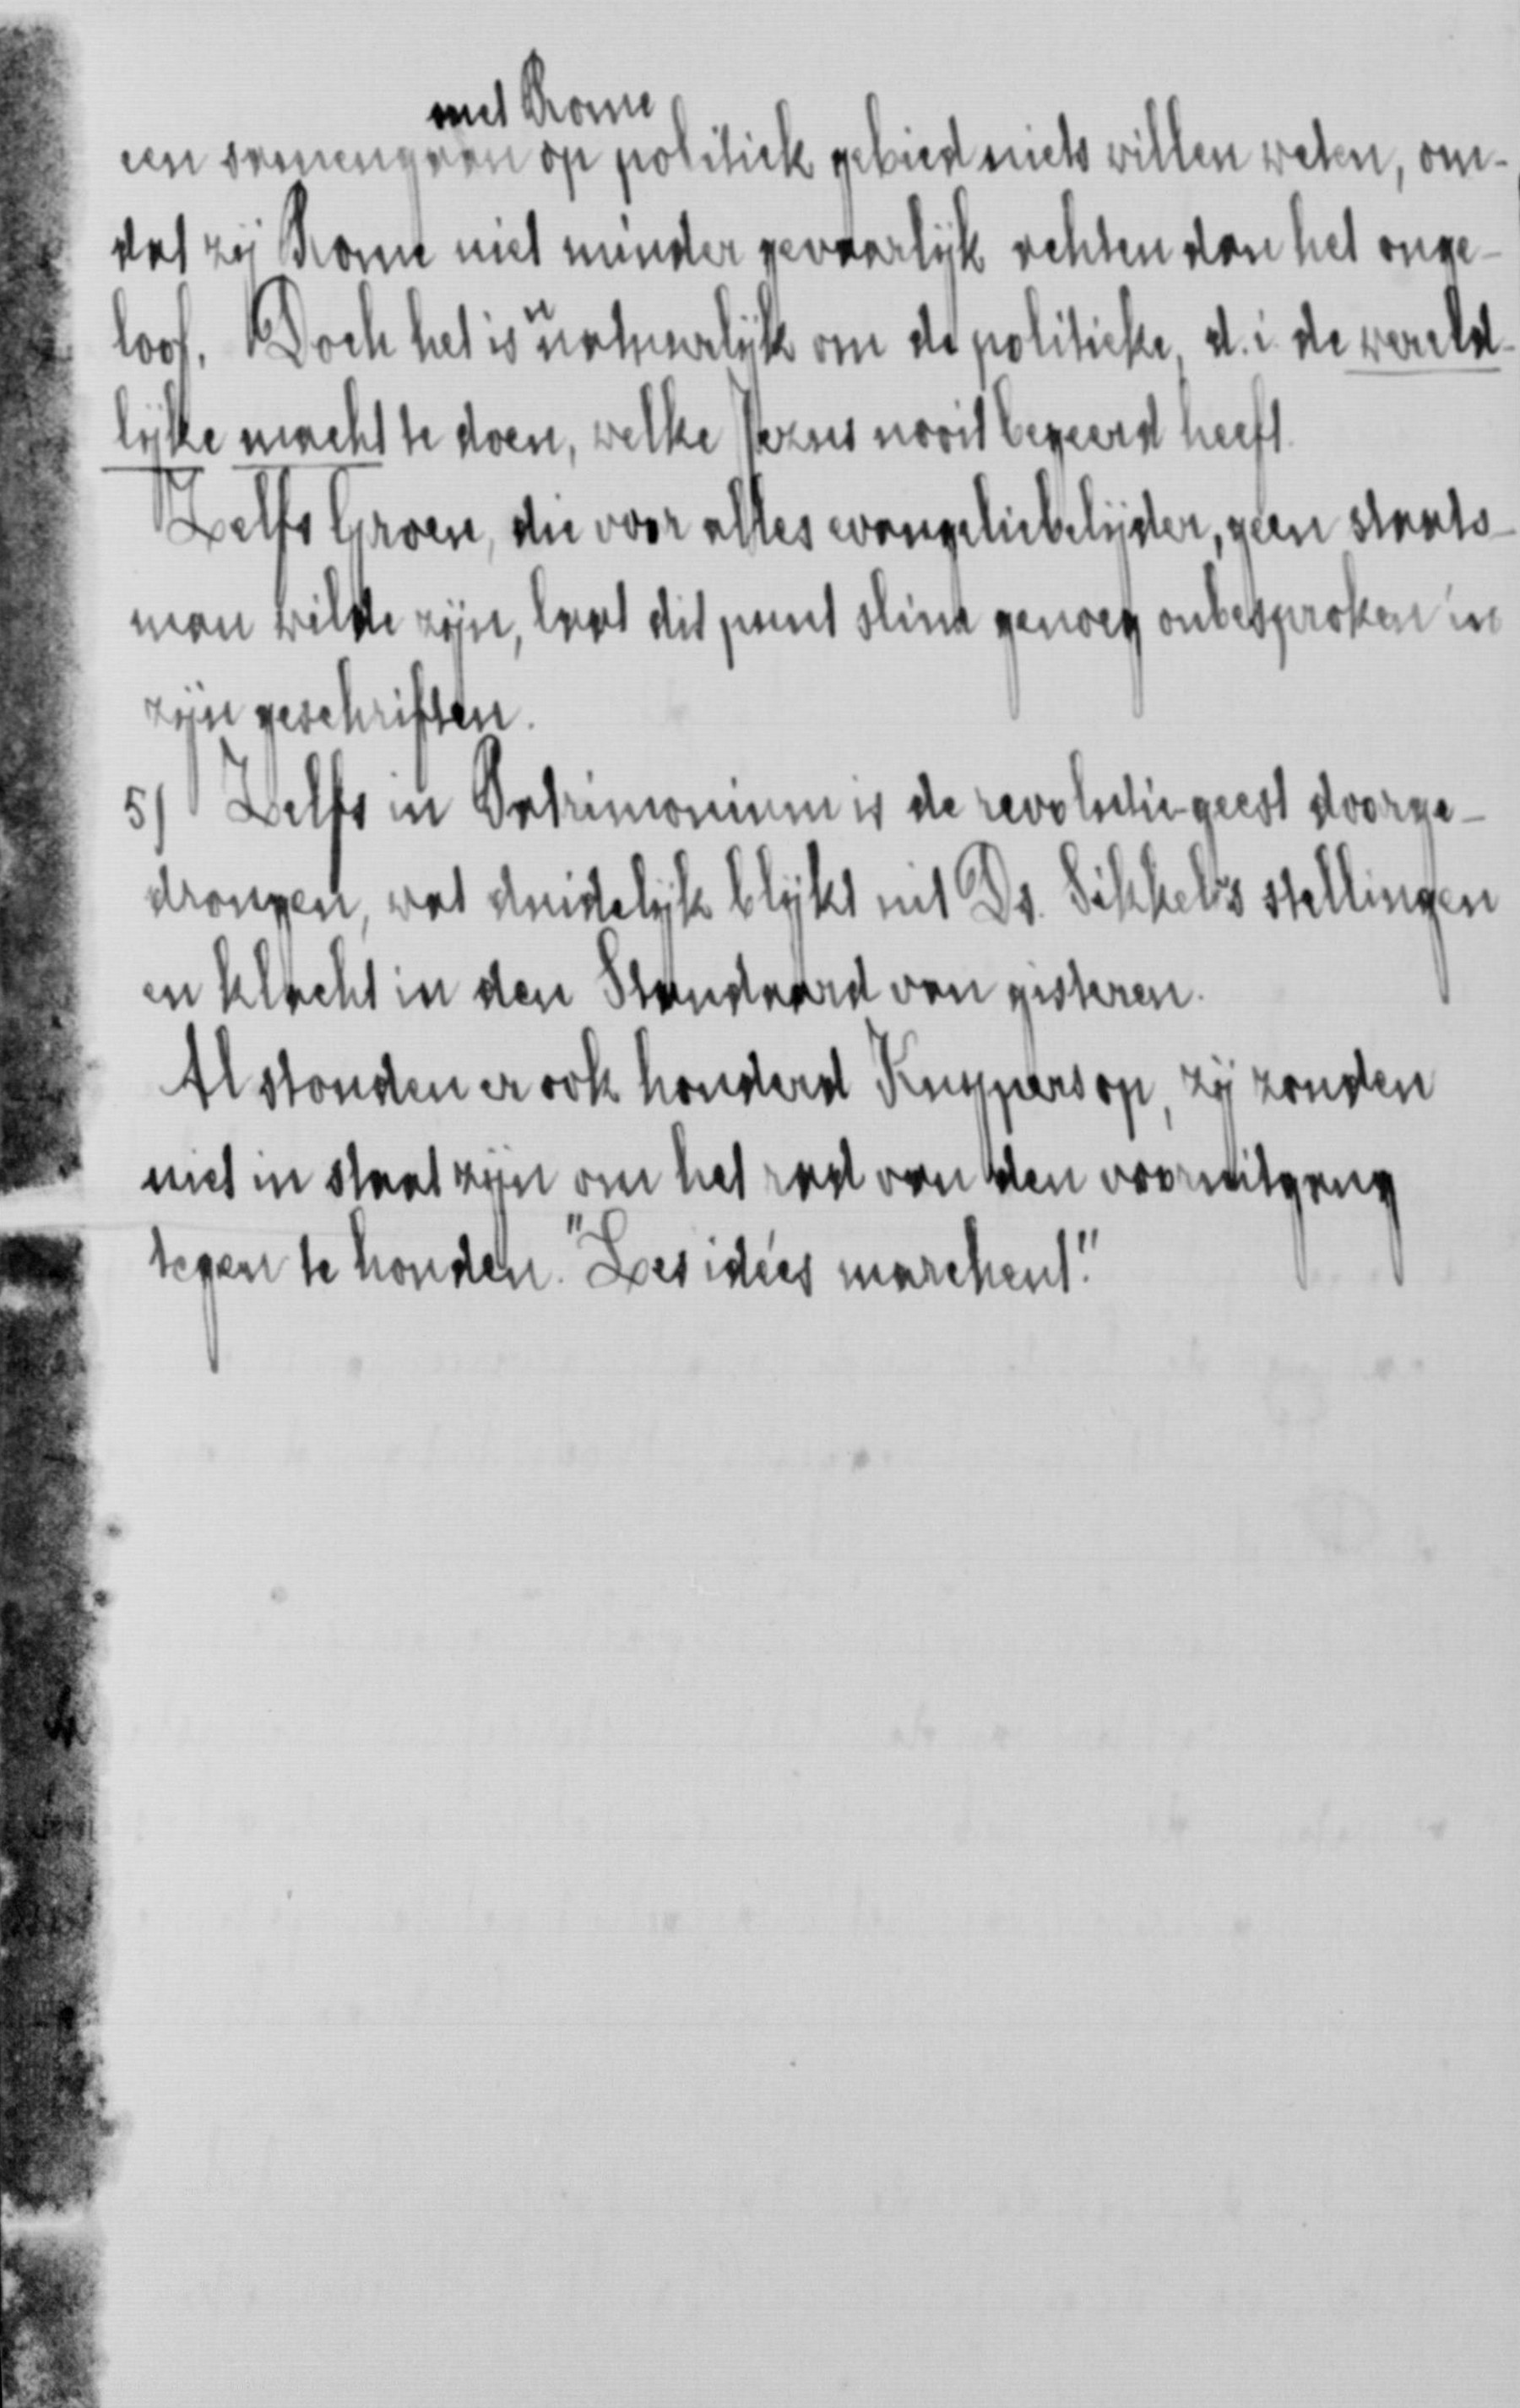 met Rome
een samengaan op politiek gebied niets willen weten, om-
dat zij Rome niet minder gevaarlijk achten dan het onge-
loof. Doch het is natuurlijk om de politieke, d.i. de wereld-
lijke macht te doen, welke Jezus nooit begeerd heeft.
Zelfs Groen, die voor alles evangeliebelijder, geen staats-
man wilde zijn, laat dit punt slim genoeg onbesproken in
zijn geschriften.
5) Zelfs in Patrimonium is de revolutie-geest doorge-
drongen, wat duidelijk blijkt uit Ds. Sikkel's stellingen
en klacht in den Standaard van gisteren.
Al stonden er ook honderd Kuypers op, zij zouden
niet in staat zijn om het rad van den vooruitgang
tegen te houden. "Les idées marchent."